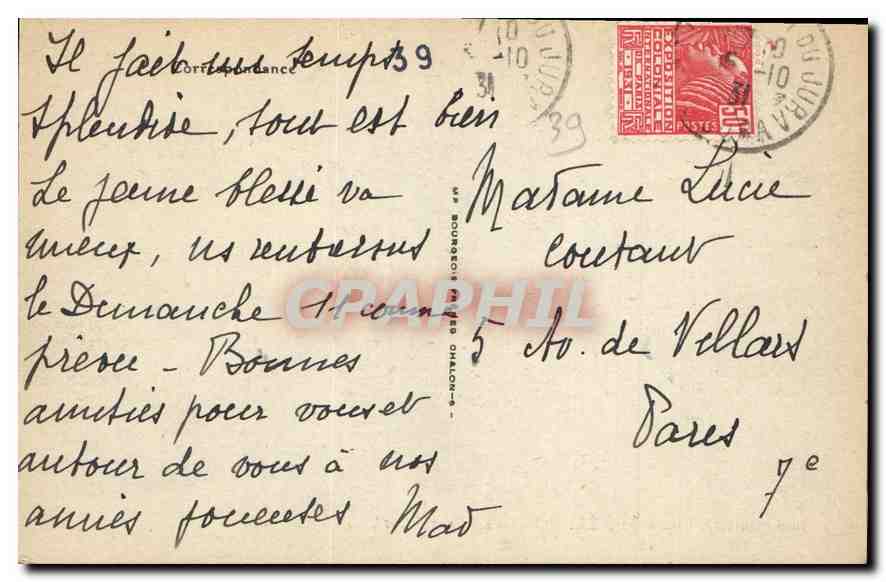 Correspondance
39
Il fait un temps
splendide, tout est bien
Le jeune blessé va
mieux, ns rentrerons
le Dimanche 11 comme
prévu - Bonnes
amitiés pour vous et
autour de vous à nos
amies joueuses Mad
39
10
-10
31
DU JURA
EXPOSITION
COLONIALE
INTERNATIONALE
PARIS 1931
POSTES
50c
-10
31
DU JURA
Madame Lucie
Coutant
5 Av. de Villars
Paris
7e
MP BOURGEOIS FRÈRES CHALON-S-
CPAPHIL